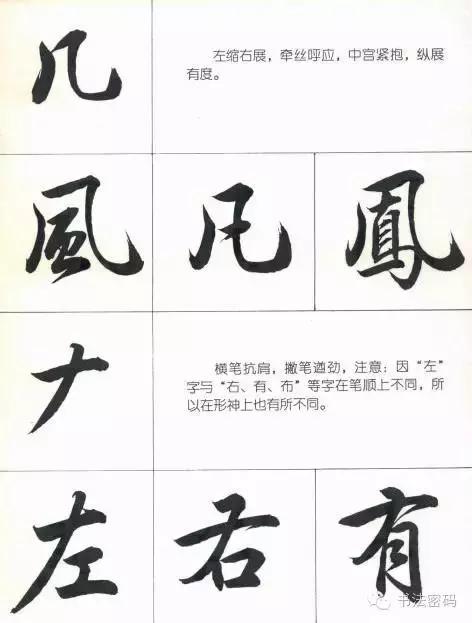 几
左缩右展，牵丝呼应，中宫紧抱，纵展
有度。
風 凡 鳳
ナ
横笔抗肩，撇笔遒劲，注意：因“左”
字与“右、有、布”等字在笔顺上不同，所
以在形神上也有所不同。
左 右 有
书法密码